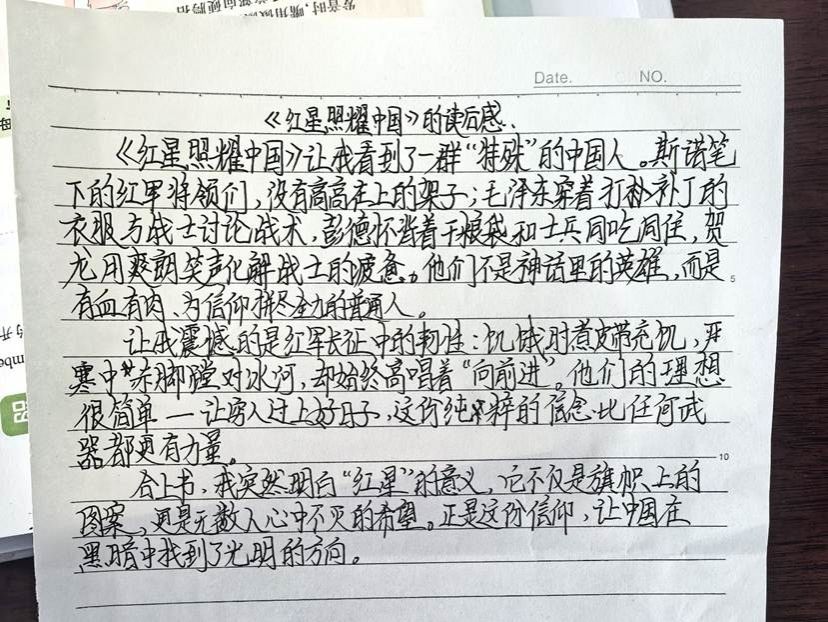 Date. NO.
《红星照耀中国》的读后感、
《红星照耀中国》让我看到了一群“特殊”的中国人。斯诺笔
下的红军将领们，没有高高在上的架子；毛泽东穿着打补丁的
衣服与战士讨论战术，彭德怀背着干粮袋和士兵同吃同住，贺
龙用爽朗笑声化解战士的疲惫。他们不是神话里的英雄，而是
5
有血有肉、为信仰拼尽全力的普通人。
让我震撼的是红军长征中的韧性：饥饿时煮皮带充饥，严
寒中赤脚蹚过冰河，却始终高唱着“向前进”。他们的理想
很简单——让穷人过上好日子，这份纯粹的信念比任何武
器都更有力量。
10
合上书，我突然明白“红星”的意义，它不仅是旗帜上的
图案，更是无数人心中不灭的希望。正是这份信仰，让中国在
黑暗中找到了光明的方向。